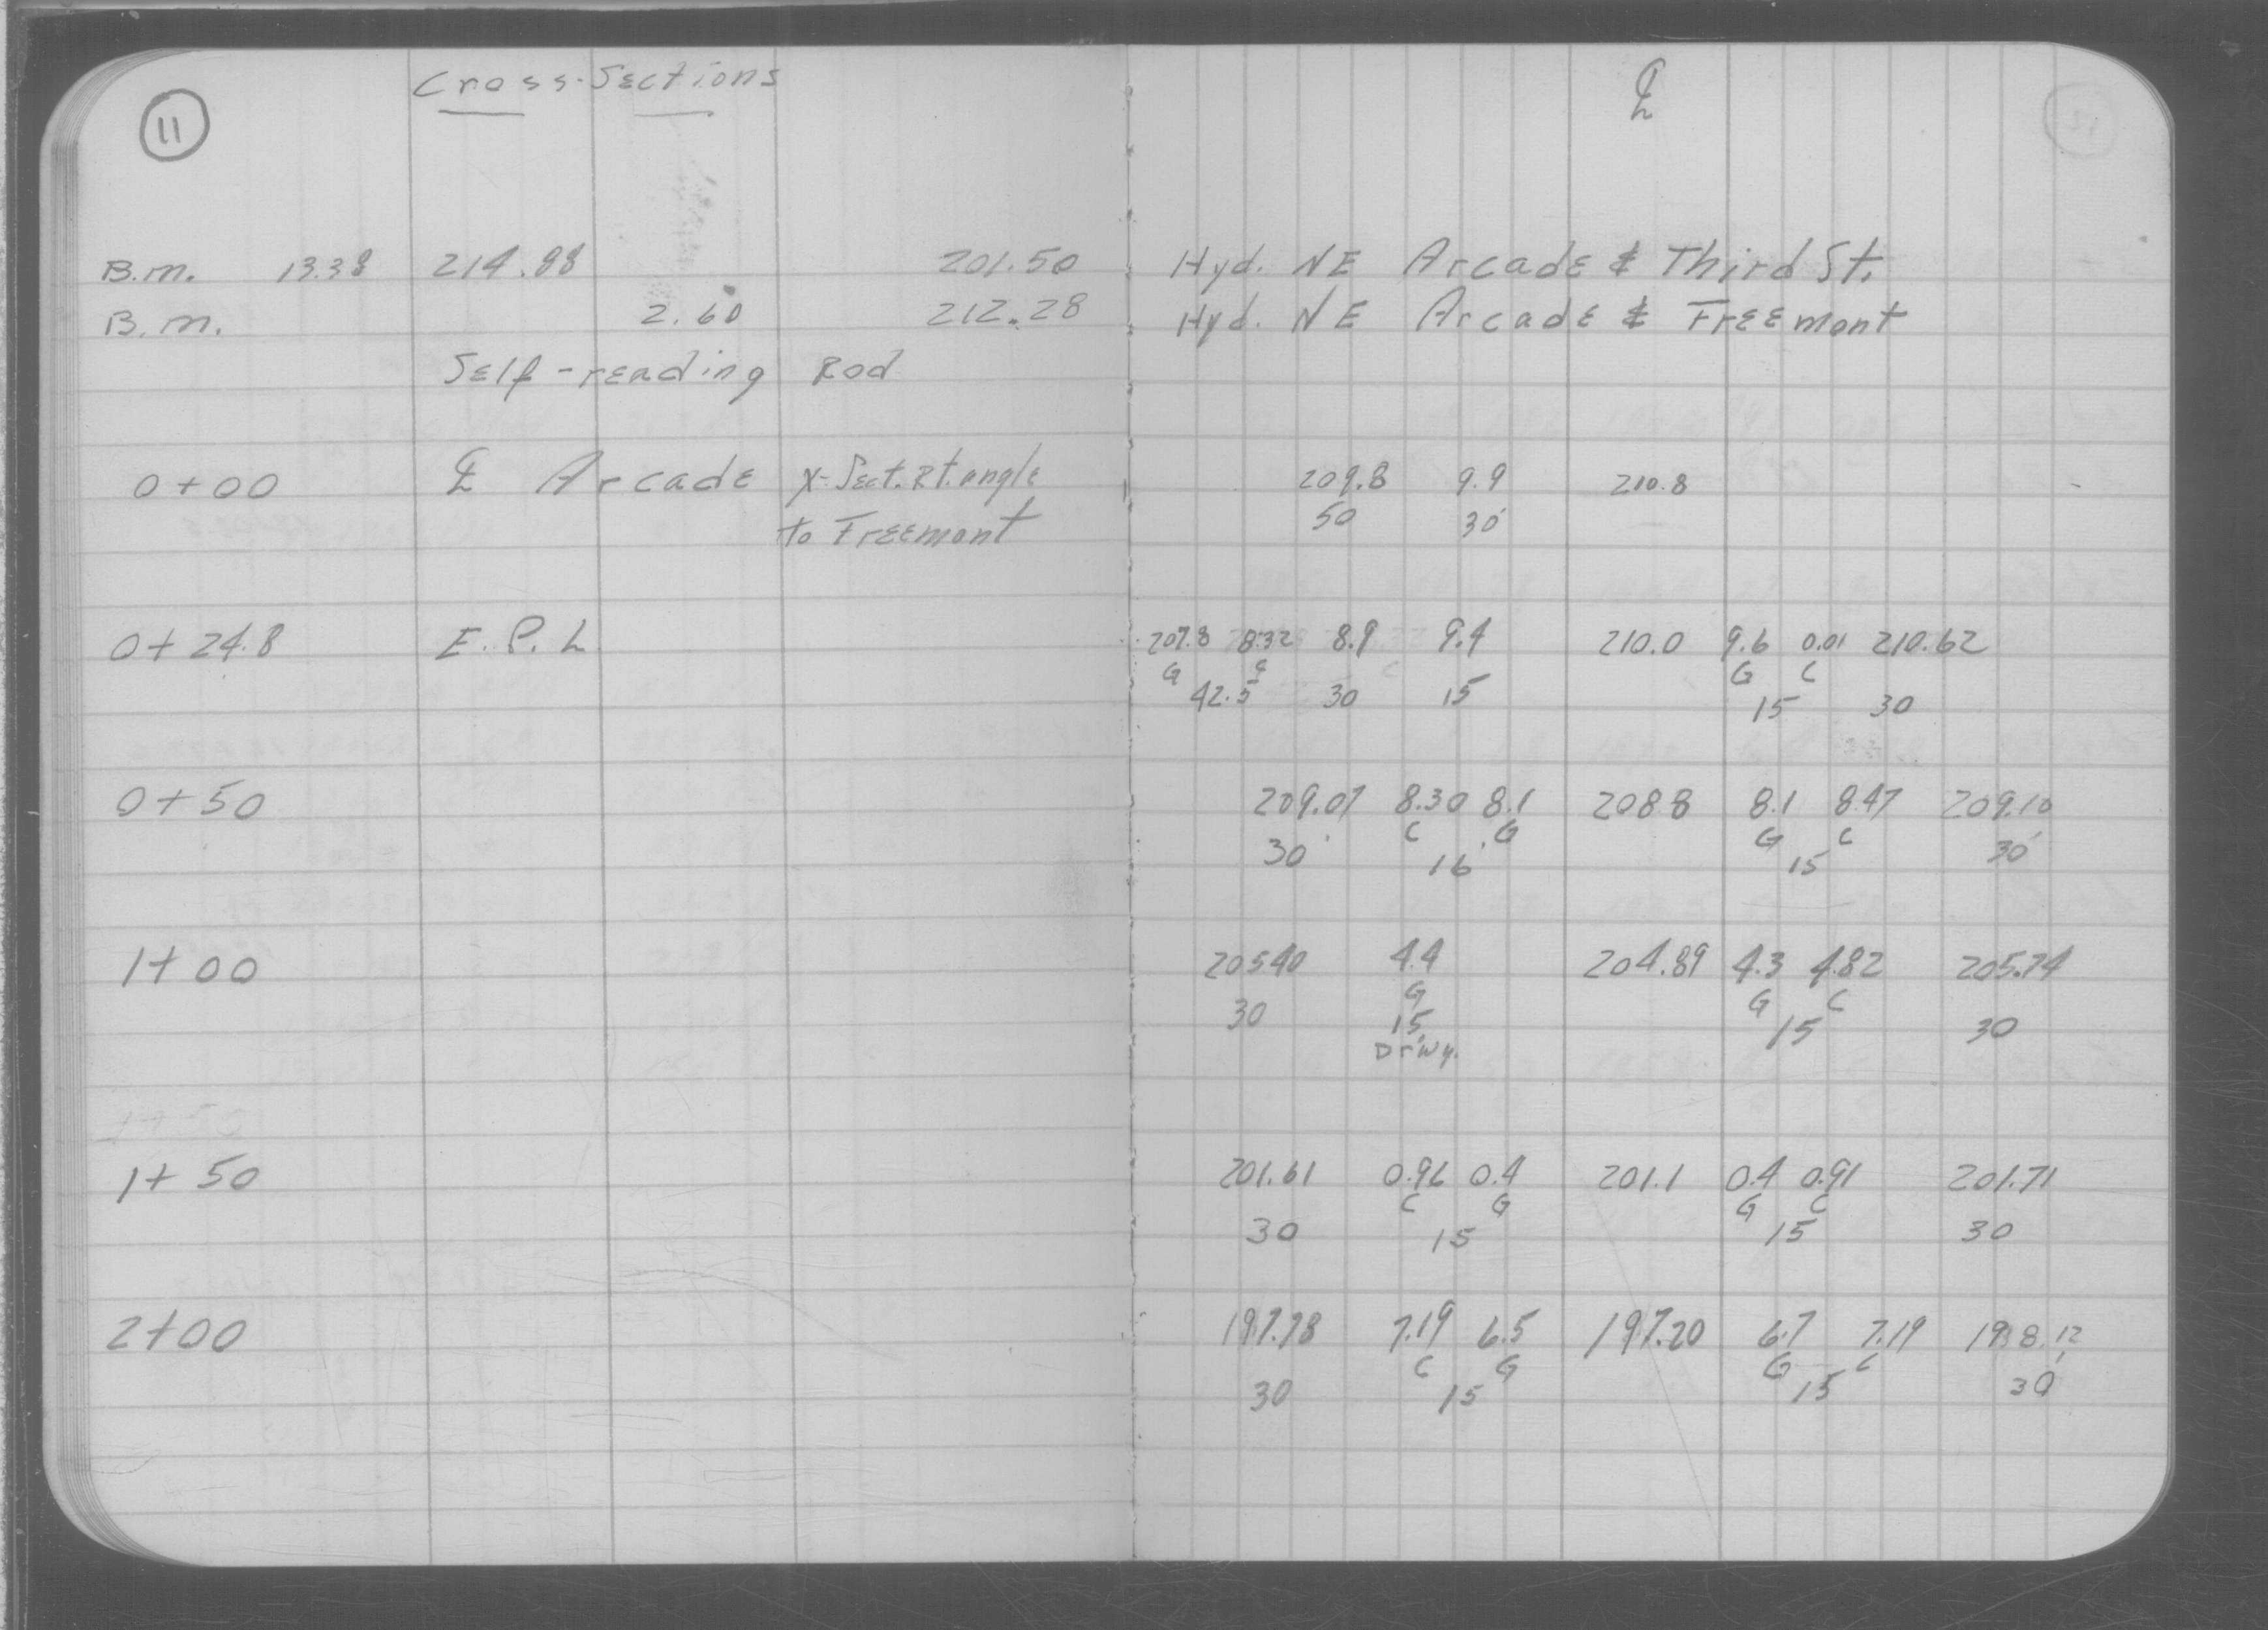 11
Cross-Sections
℄
B.M. 13.38 214.88 201.50 Hyd. NE Arcade & Third St.
B.M. 2.60 212.28 Hyd. NE Arcade & Freemont
Self-reading Rod
0+00 ℄ Arcade X-Sect. Rt. angle 209.8 9.9 210.8
to Freemont 50 30
0+24.8 E.P.L 207.8 8.32 8.9 9.4 210.0 9.6 0.01 210.62
G C G C
42.5 30 15 15 30
0+50 209.07 8.30 8.1 208.8 8.1 8.47 209.10
C G G C
30 16 15 30
1+00 205.40 4.4 204.89 4.3 4.82 205.74
G G C
30 15 15 30
Dr'wy.
1+50
1+50 201.61 0.96 0.4 201.1 0.4 0.91 201.71
C G G C
30 15 15 30
2+00 197.78 7.19 6.5 197.20 6.7 7.19 198.12
C G G C
30 15 15 30